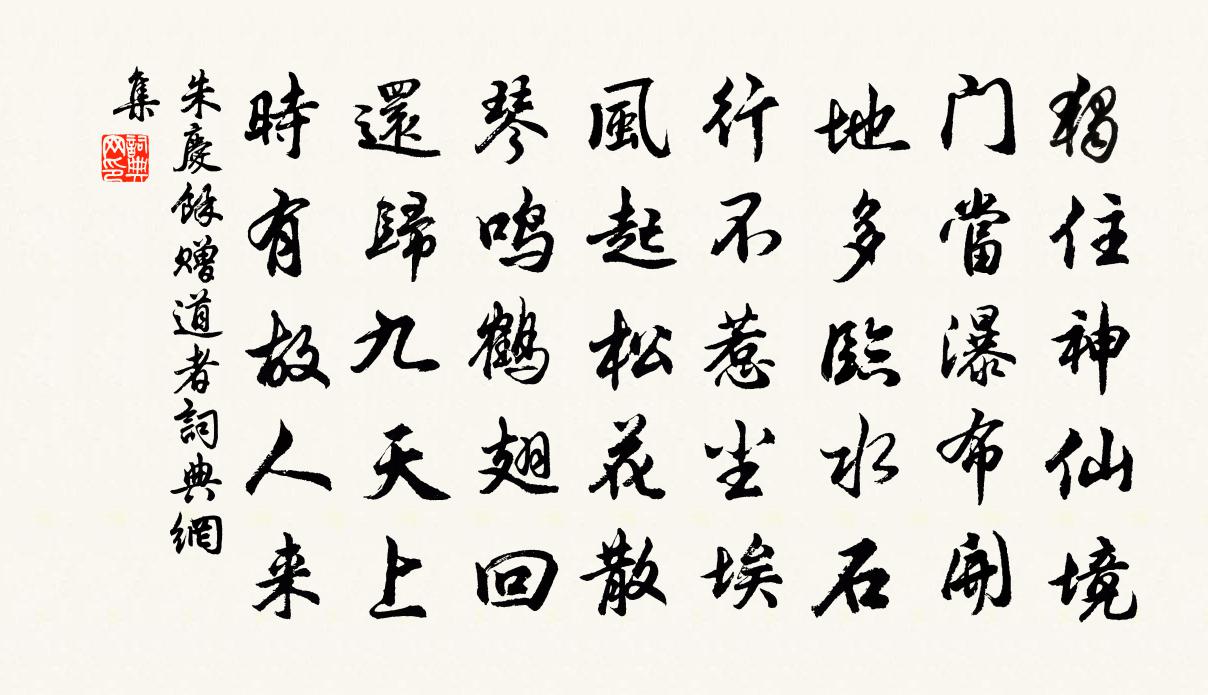 獨住神仙境
门當瀑布開
地多臨水石
行不惹尘埃
風起松花散
琴鸣鶴翅回
還歸九天上
時有故人来
朱慶餘赠道者詞典網
集
詞典网印